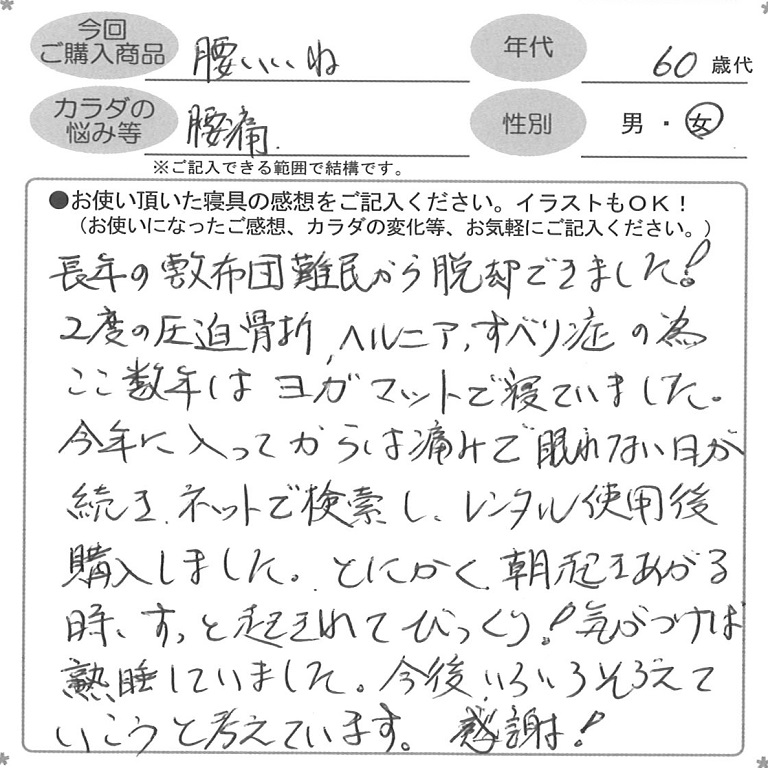 今回
ご購入商品
腰いいね
年代
60 歳代
カラダの
悩み等
腰痛.
性別
男・女
※ご記入できる範囲で結構です。
●お使い頂いた寝具の感想をご記入ください。イラストもOK!
(お使いになったご感想、カラダの変化等、お気軽にご記入ください。)
長年の敷布団難民から脱却できました!
2度の圧迫骨折,ヘルニア,すべり症の為
ここ数年はヨガマットで寝ていました。
今年に入ってからは痛みで眠れない日が
続き、ネットで検索し、レンタル使用後
購入しました。とにかく朝起きあがる
時、すっと起きれてびっくり!気がつけば
熟睡していました。今後いろいろそろえて
いこうと考えています。感謝!